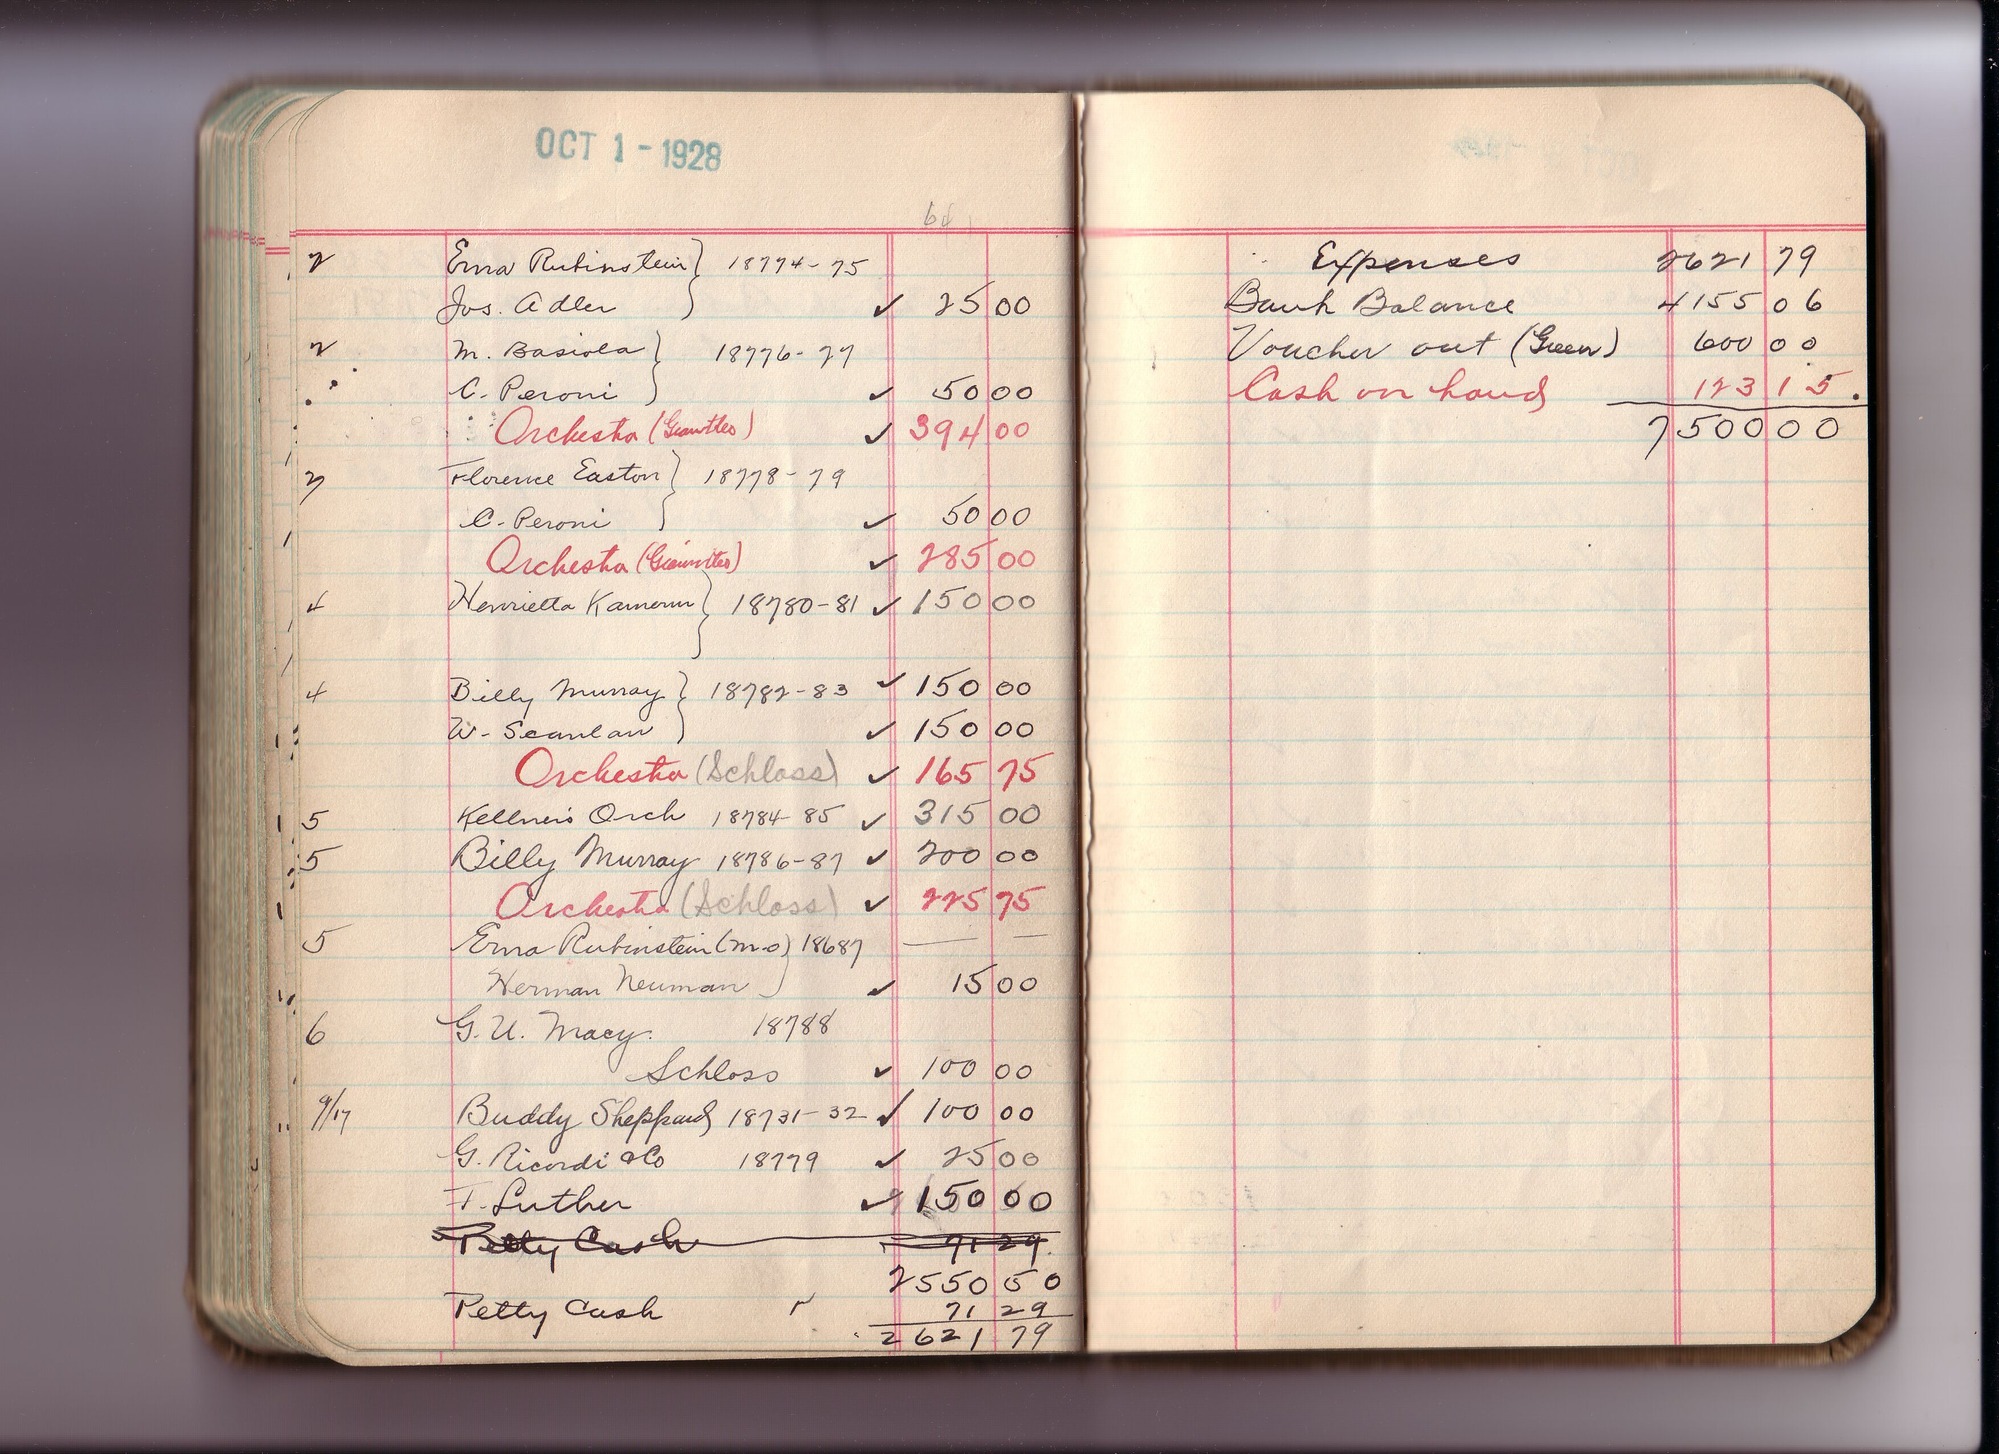 OCT 1 - 1928
64
2 Erna Rubinstein } 18774-75
Jos. Adler ✓ 25 00
2 M. Basiola } 18776-77
C. Peroni ✓ 50 00
Orchestra ✓ 394 00
2 Florence Easton } 18778-79
C. Peroni ✓ 50 00
Orchestra ✓ 285 00
4 Henrietta Kamern } 18780-81 ✓ 150 00
4 Billy Murray } 18782-83 ✓ 150 00
W. Scanlan ✓ 150 00
Orchestra (Schloss) ✓ 165 75
5 Kellner's Orch 18784-85 ✓ 315 00
5 Billy Murray 18786-87 ✓ 200 00
Orchestra (Schloss) ✓ 225 75
5 Erna Rubinstein (m.o) 18687 — —
Herman Neuman } ✓ 15 00
6 G. U. Macy. 18788
Schloss ✓ 100 00
9/17 Buddy Sheppard 18731-32 ✓ 100 00
G. Ricordi & Co 18779 ✓ 25 00
F. Luther ✓ 150 00
Petty Cash 71 29
2550 50
Petty Cash ✓ 71 29
2621 79
Expenses 2621 79
Bank Balance 4155 06
Voucher out (Green) 600 00
Cash on hand 123 15.
7500 00